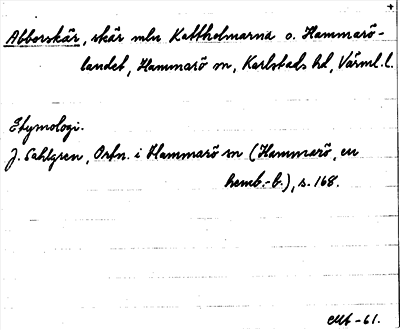 Abborskär, skär mln Kattholmarna o. Hammarö-
landet, Hammarö sn, Karlstads hd, Värml. l.
Etymologi.
J. Sahlgren, Ortn. i Hammarö sn (Hammarö, en
hemb.-b.), s. 168.
-61.